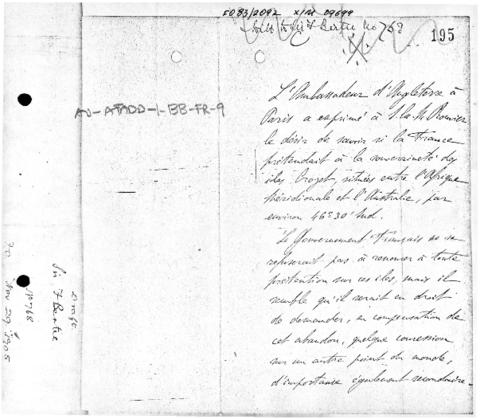 5083/2092 X/M-09699
Sir F Bertie No 768
195
AU-ATADD-1-BB-FR-9
L'Ambassadeur d'Angleterre à
Paris a exprimé à
le désir de savoir si la France
prétendait à la souveraineté des
îles Crozet, situées entre l'Afrique
Méridionale et l'Australie, par
environ 46°30' Sud.
Le Gouvernement français ne se
refuserait pas à renoncer à toute
prétention sur ces îles, mais il
semble qu'il serait en droit
de demander, en compensation de
cet abandon, quelque concession
sur un autre point du monde,
d'importance également secondaire
Draft
Sir F Bertie
No 768
Nov 29 1905